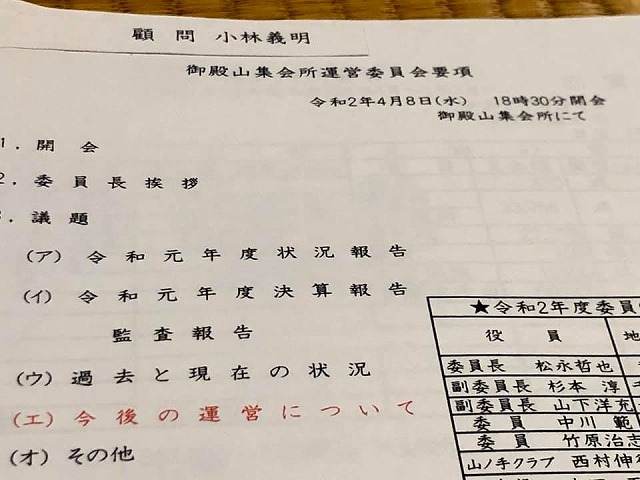 顧問 小林義明
御殿山集会所運営委員会要項
令和2年4月8日(水) 18時30分開会
御殿山集会所にて
1. 開会
2. 委員長挨拶
. 議題
(ア) 令和元年度状況報告
(イ) 令和元年度決算報告
監査報告
(ウ) 過去と現在の状況
(エ) 今後の運営について
(オ) その他
★令和2年度委員
役員 地
委員長 松永哲也
副委員長 杉本 淳
副委員長 山下洋充
委員 中川 範
委員 竹原治志
山ノ手クラブ 西村伸